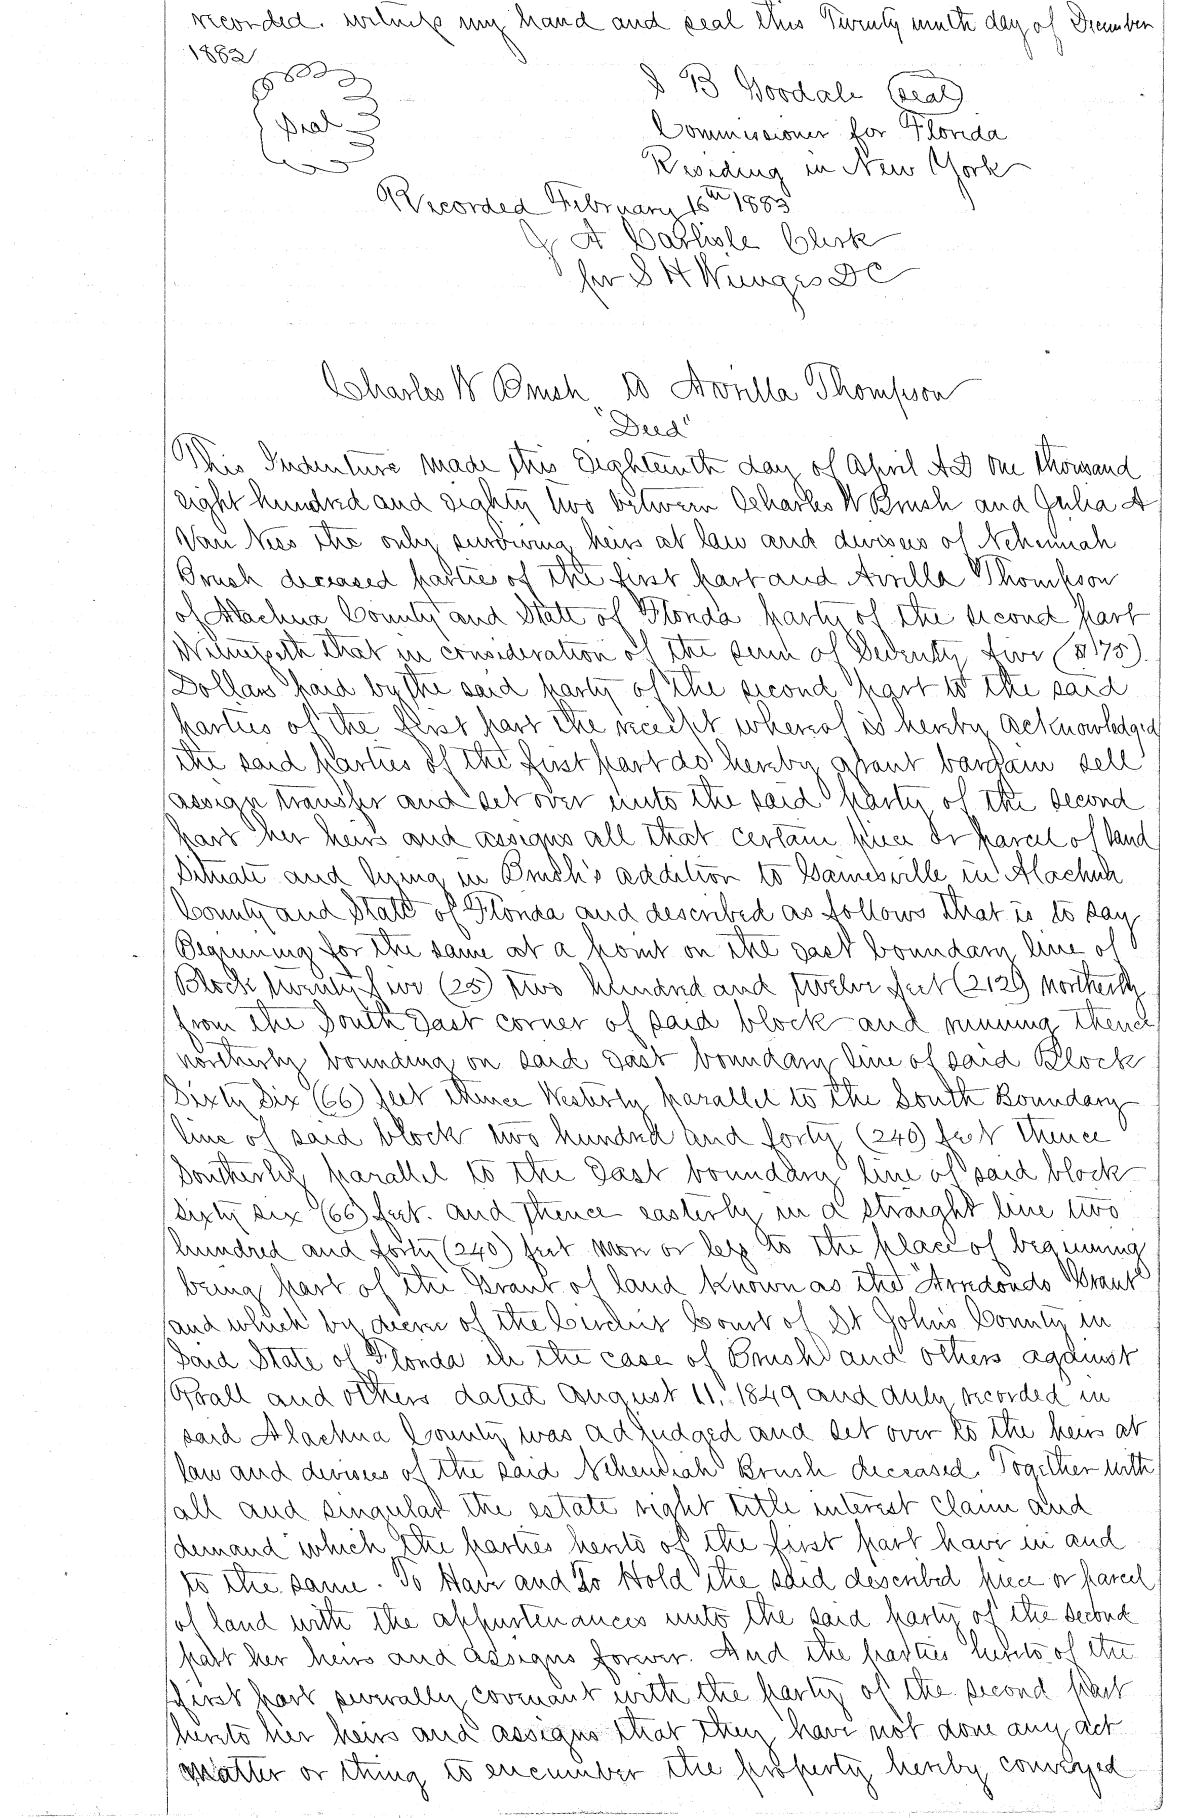 recorded. witness my hand and seal this Twenty ninth day of December
1882
Seal
S B Goodale (seal)
Commissioner for Florida
Residing in New York
Recorded February 16th 1883
J A Carlisle Clerk
for S H Wienges DC
Charles W Brush to Avrilla Thompson
"Deed"
This Indenture made this Eighteenth day of April AD one thousand
eight hundred and eighty two between Charles W Brush and Julia A
Van Ness the only surviving heirs at law and devisees of Nehemiah
Brush deceased parties of the first part and Avrilla Thompson
of Alachua County and State of Florida party of the second part
Witnesseth that in consideration of the sum of Seventy five ($75)
Dollars paid by the said party of the second part to the said
parties of the first part the receipt whereof is hereby acknowledged
the said parties of the first part do hereby grant bargain sell
assign transfer and set over unto the said party of the second
part her heirs and assigns all that certain piece or parcel of land
situate and lying in Brush's addition to Gainesville in Alachua
County and State of Florida and described as follows that is to say
Beginning for the same at a point on the east boundary line of
Block twenty five (25) two hundred and twelve feet (212) northerly
from the South East corner of said block and running thence
northerly bounding on said East boundary line of said Block
Sixty Six (66) feet thence Westerly parallel to the South Boundary
line of said block two hundred and forty (240) feet thence
Southerly parallel to the East boundary line of said block
sixty six (66) feet. and thence easterly in a straight line two
hundred and forty (240) feet more or less to the place of beginning
being part of the Grant of land known as the "Arredondo Grant"
and which by decree of the Circuit Court of St Johns County in
said State of Florida in the case of Brush and others against
Prall and others dated August 11, 1849 and duly recorded in
said Alachua County was adjudged and set over to the heirs at
law and devisees of the said Nehemiah Brush deceased. Together with
all and singular the estate right title interest claim and
demand which the parties hereto of the first part have in and
to the same. To Have and To Hold the said described piece or parcel
of land with the appurtenances unto the said party of the second
part her heirs and assigns forever. And the parties hereto of the
first part severally covenant with the party of the second part
hereto her heirs and assigns that they have not done any act
matter or thing to encumber the property hereby conveyed